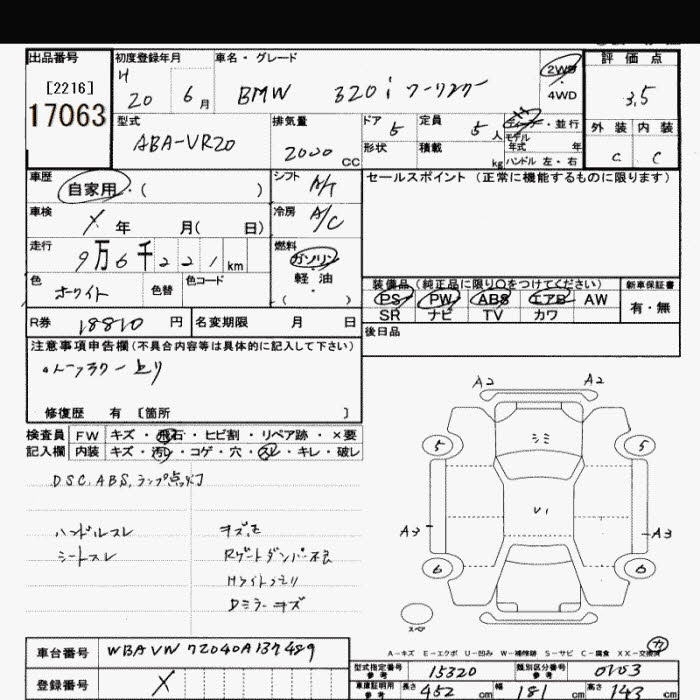 出品番号 初度登録年月 車名・グレード 2WD 4WD 評価点
[2216]
17063
H 20 6月 BMW 320i ツーリング 3.5
型式 ABA-VR20 排気量 2000 cc ドア 5 定員 5人 ・並行 外装 内装
形状 積載 kg モデル年式 年 ハンドル 左・右 C C
車歴 自家用・( ) シフト A/T セールスポイント (正常に機能するものに限ります)
車検 X 年 月( 日) 冷房 A/C
走行 9万6千221km 燃料 ガソリン・軽油・( )
色 ホワイト 色替 色コード
装備品(純正品に限り○をつけてください) 新車保証書
PS PW ABS エアB AW 有・無
SR ナビ TV カワ
R券 18810円 名変期限 月 日 後日品
注意事項申告欄(不具合内容等は具体的に記入して下さい)
修復歴 有 〔箇所 〕
検査員記入欄 FW キズ・飛石・ヒビ割・リペア跡・×要
内装 キズ・汚レ・コゲ・穴・スレ・キレ・破レ
DSC, ABS, ランプ点灯
ハンドルスレ
シートスレ
Rゲートダンパー不良
Hライトクモリ
Dミラーキズ
A2 A2
シミ
5 5
U1
A3 A3
6 6
スペア
A-キズ E-エクボ U-凹み W-補修跡 S-サビ C-腐食 XX-交換済
車台番号 WBAVW72040A137489
登録番号 X
型式指定番号 参考 15320 類別区分番号 参考 0103
車庫証明用 参考 長さ 452 cm 幅 181 cm 高さ 143 cm